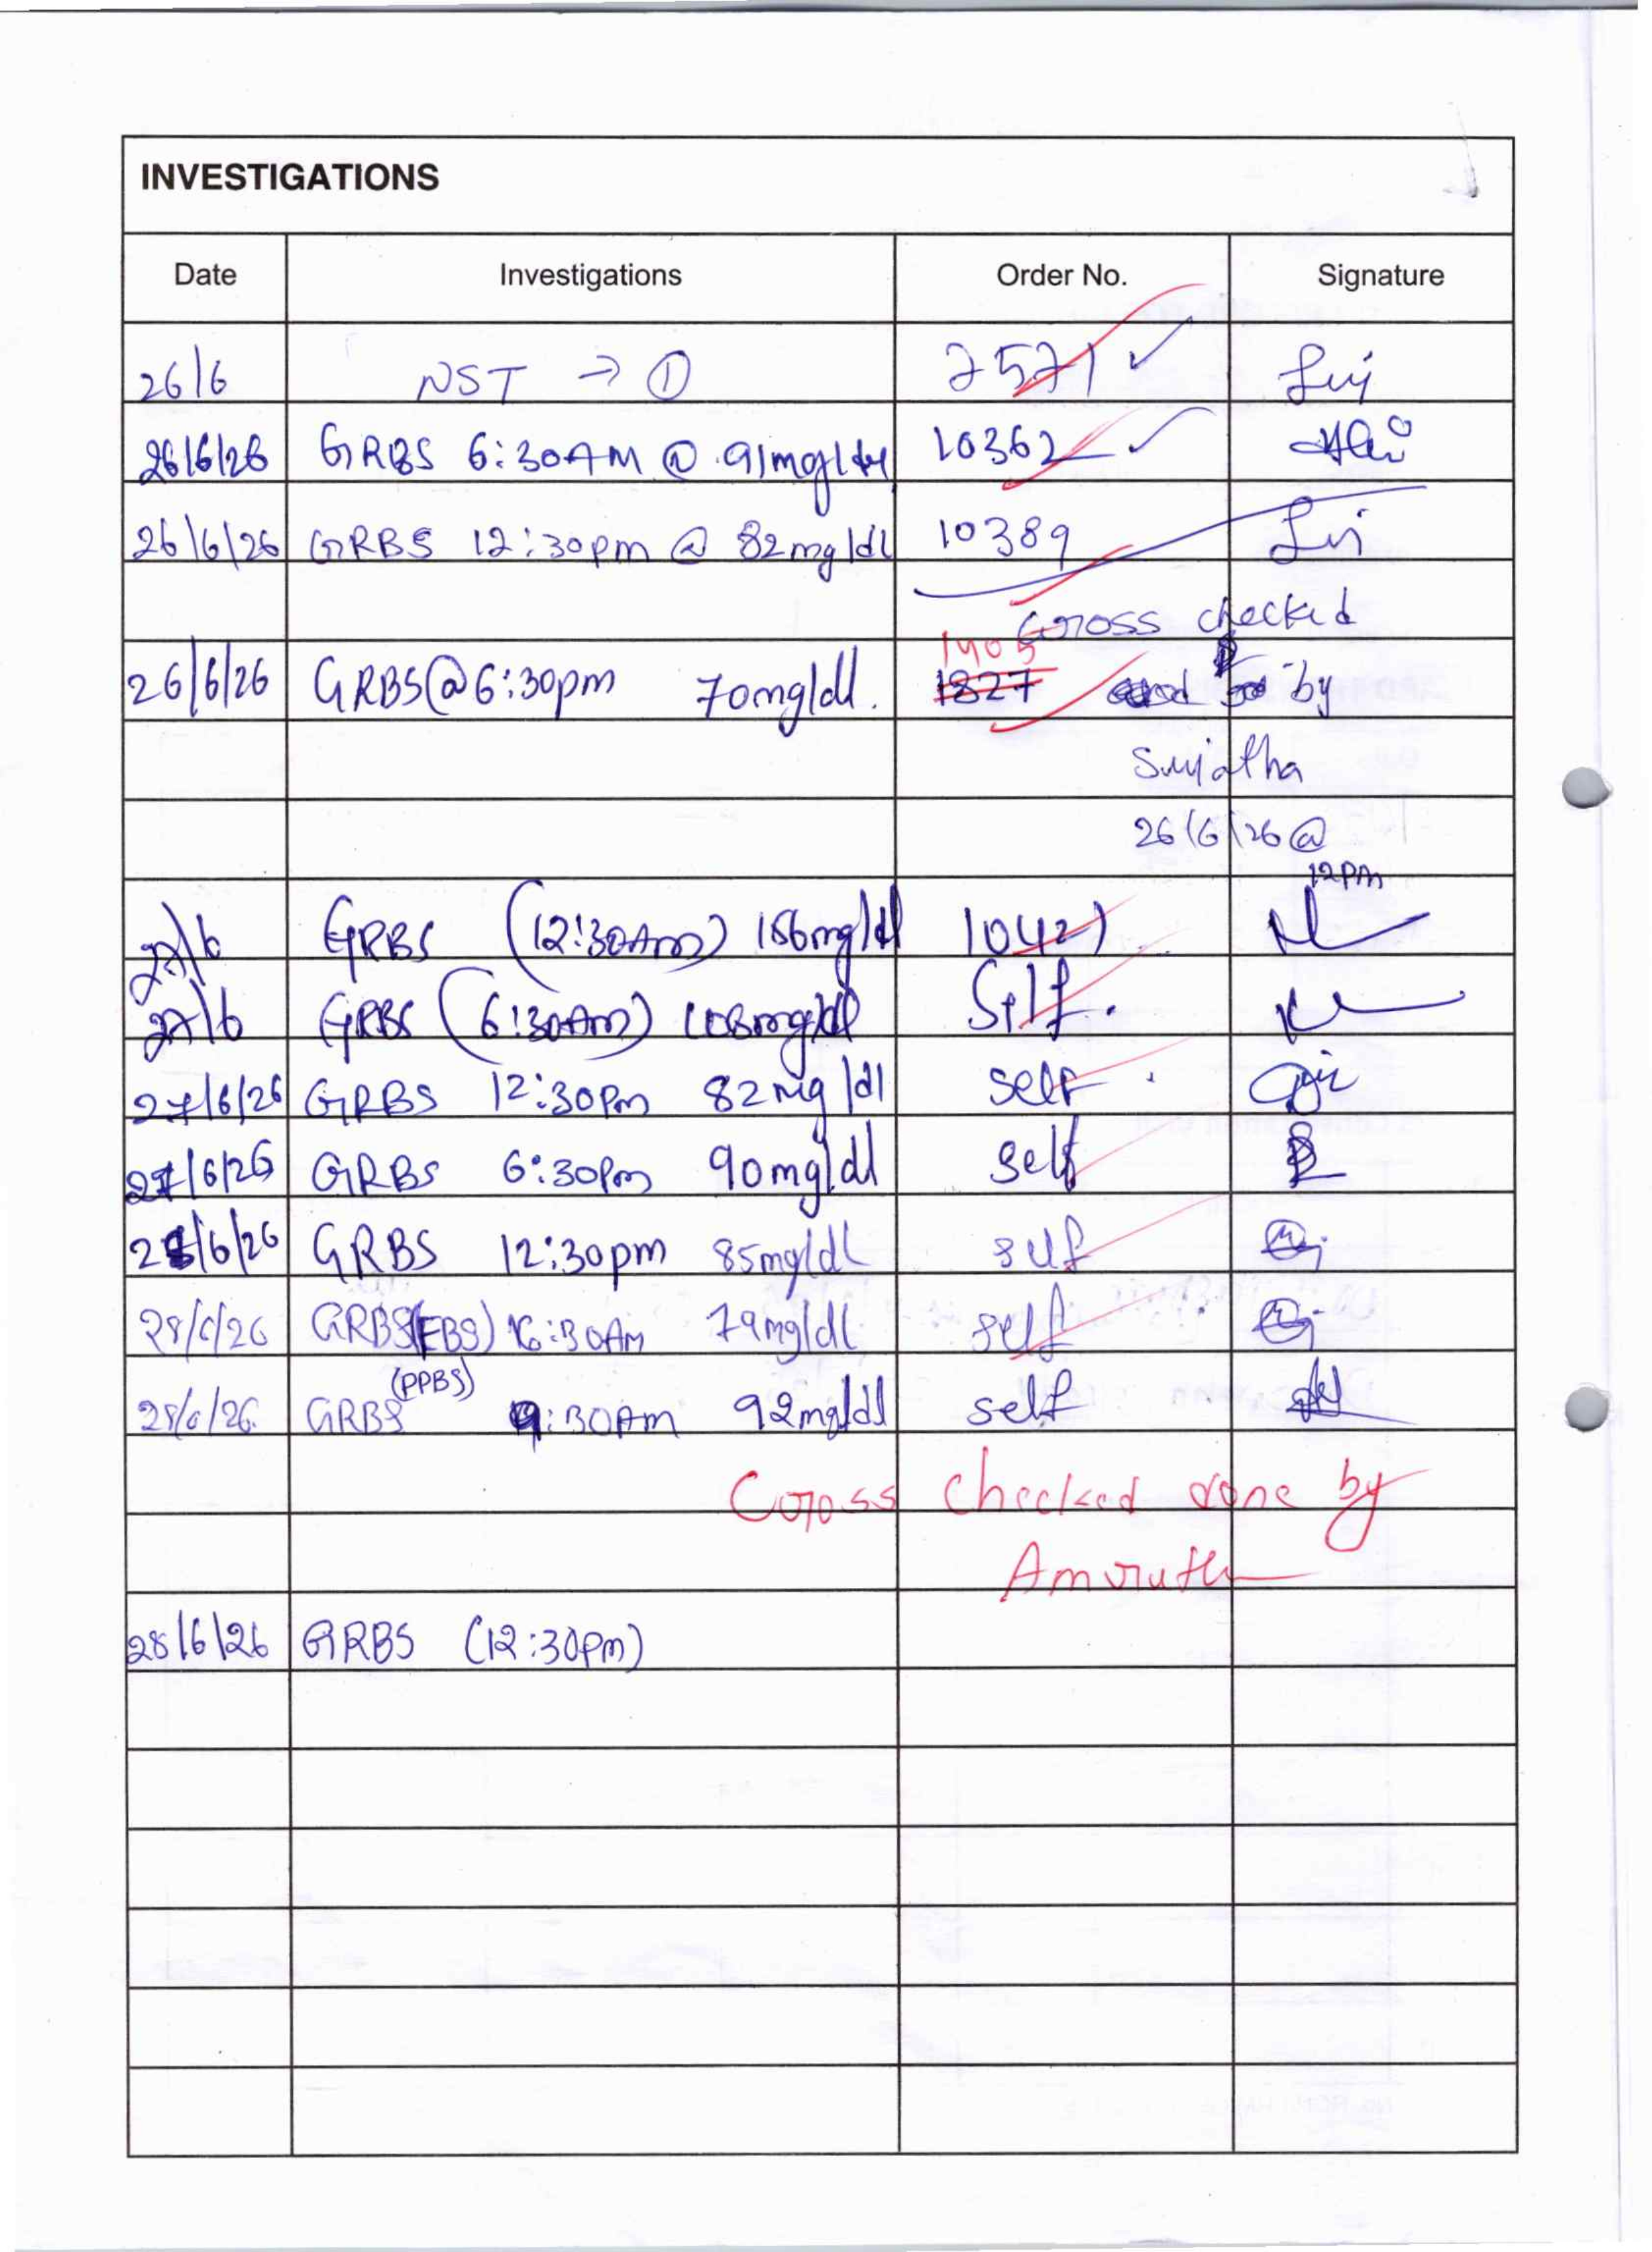 INVESTIGATIONS
Date Investigations Order No. Signature
26/6 NST → ① 2571 ✓
26/6/26 GRBS 6:30AM @ 91mg/dl 10362 ✓
26/6/26 GRBS 12:30pm @ 82mg/dl 10389
Cross checked
1405
26/6/26 GRBS@6:30pm 70mg/dl. 1827 by
Sujatha
26/6/26 @
12pm
27/6 GRBS (12:30Am) 156mg/dl 10421
27/6 GRBS (6:30Am) 108mg/dl Self.
27/6/26 GRBS 12:30Pm 82mg/dl self
27/6/26 GRBS 6:30Pm 90mg/dl self
28/6/26 GRBS 12:30pm 85mg/dl self
28/6/26 GRBS(FBS) 6:30Am 79mg/dl self
(PPBS)
28/6/26. GRBS 9:30Am 92mg/dl self
Cross checked done by
Amruth
28/6/26 GRBS (12:30pm)